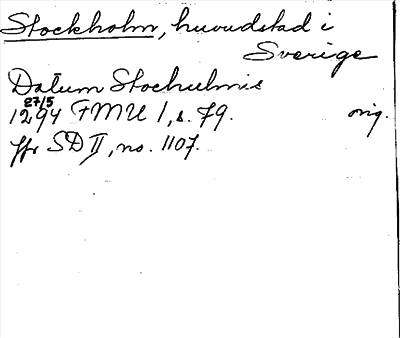 Stockholm, huvudstad i
Sverige
Datum Stochulmis
27/5
1294 FMU I, s. 79. orig.
jfr SD II, no. 1107.